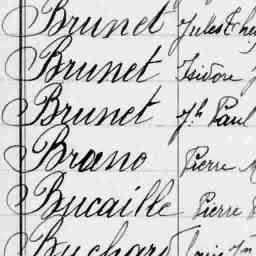 Brunet Jules
Brunet Isidore
Brunet Jh Paul
Bruno Pierre
Bucaille Pierre
Buchard